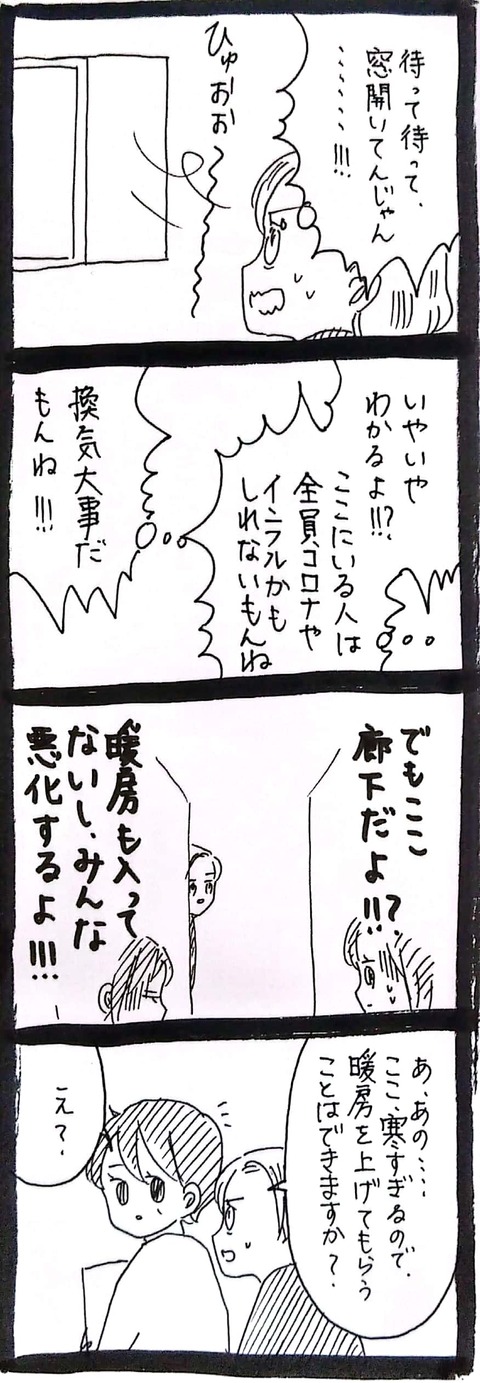 待って待って、
窓開いてんじゃん
、、、、、、!!!
ひゅおお〜
いやいや
わかるよ!!?
ここにいる人は
全員、コロナや
インフルかも
しれないもんね
換気大事だ
もんね!!!
でもここ
廊下だよ!!?
暖房も入って
ないし、みんな
悪化するよ!!!
あ、あの、、、、
ここ、寒すぎるので、
暖房を上げてもらう
ことはできますか?
え?